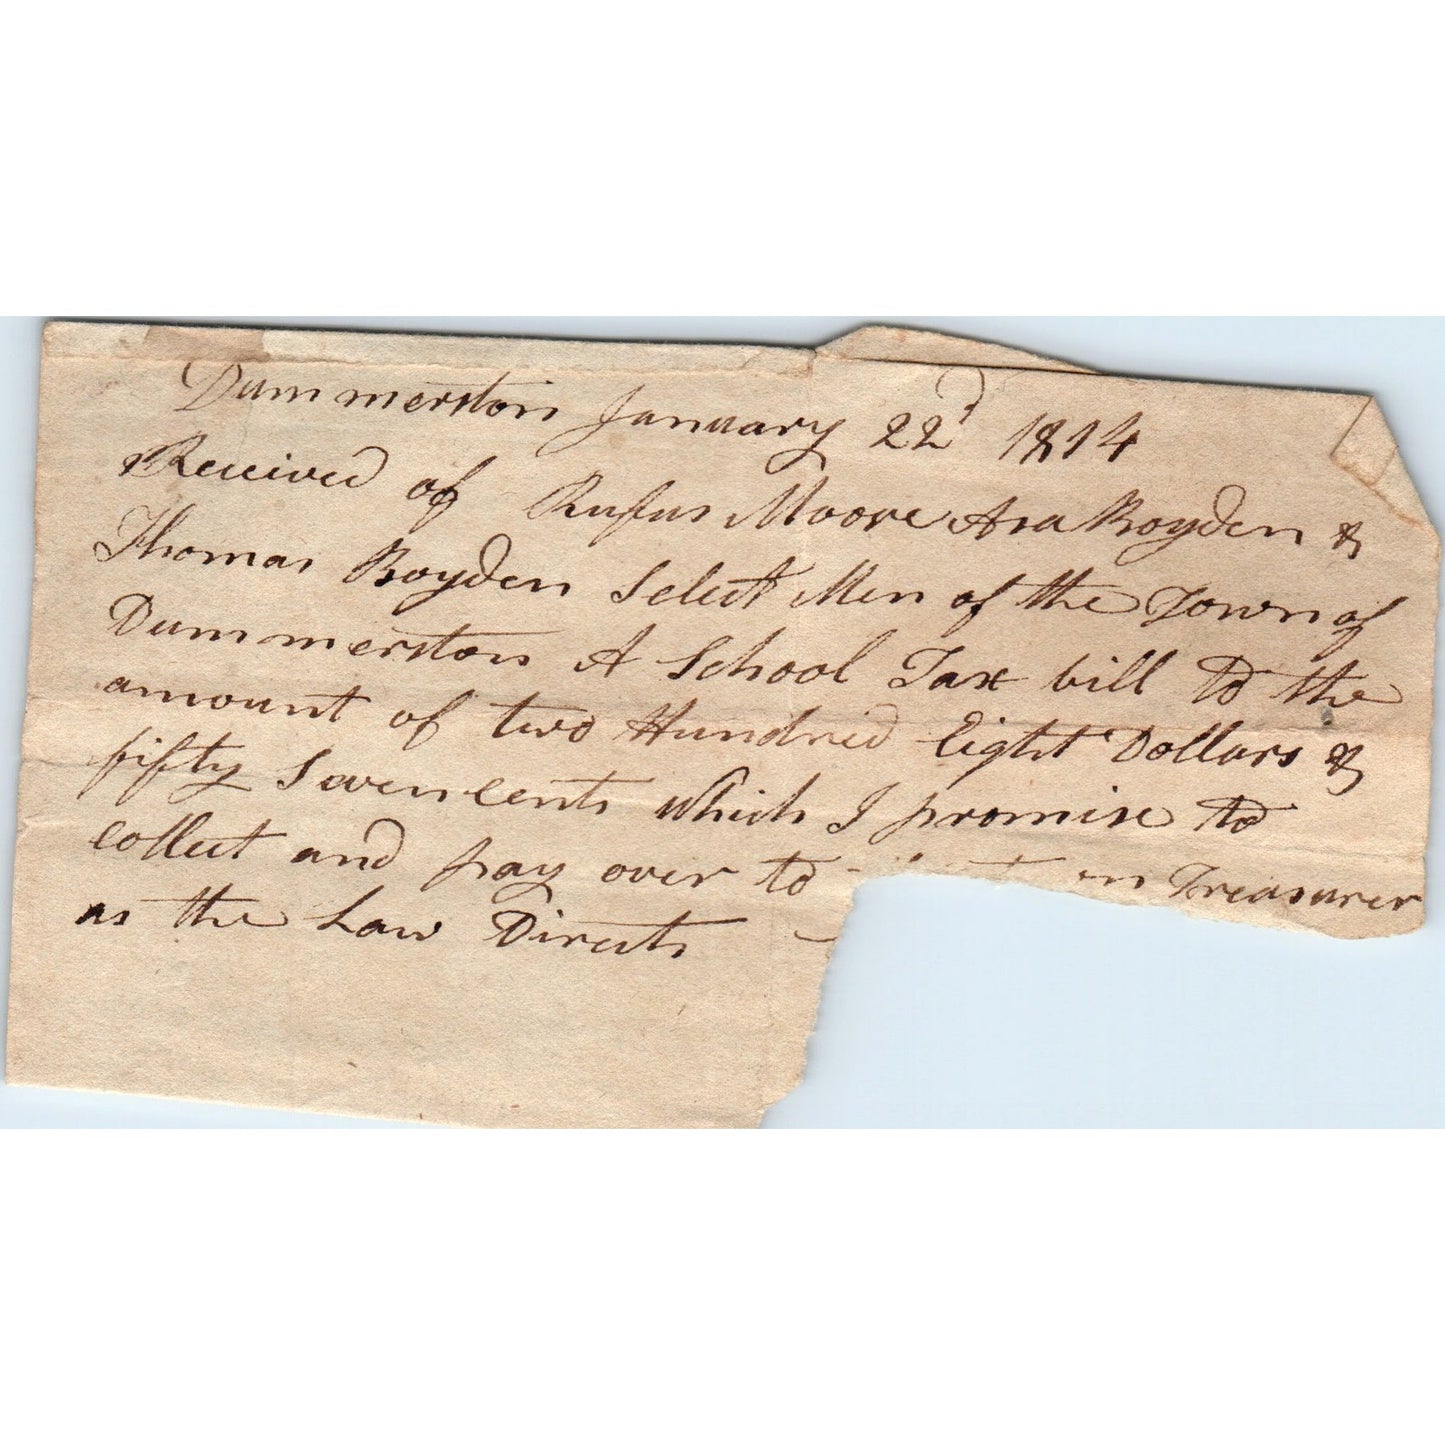 Dummerston January 22d 1814
Received of Rufus Moore Asa Boyden &
Thomas Boyden Select Men of the Town of
Dummerston A School Tax bill to the
amount of two Hundred Eight Dollars &
fifty Seven cents which I promise to
collect and pay over to Treasurer
as the Law Directs